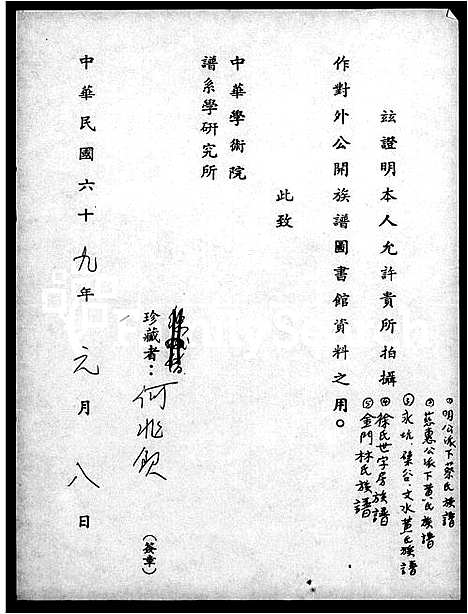 玆證明本人允許貴所拍攝
作對外公開族譜圖書館資料之用。
①明公派下蔡氏族譜
②慈惠公派下黃氏族譜
③永坑、保谷、文水黃氏族譜
④徐氏世字房族譜
⑤金門林氏族譜
此致
中華學術院
譜系學研究所
珍藏者：何兆欽
(簽章)
中華民國六十九年元月八日